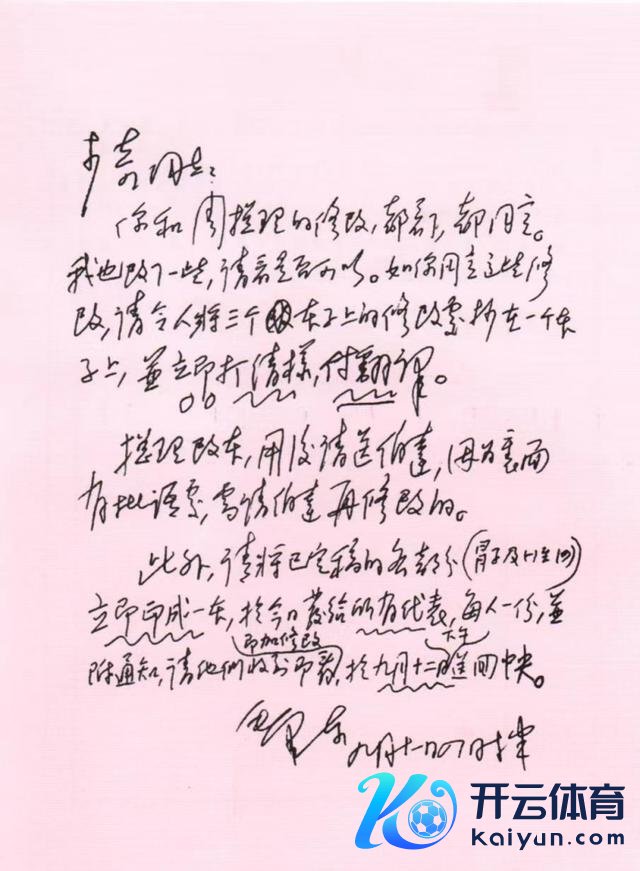 少奇同志:
你和周总理的修改,都看了,都同意。
我也改了一些,请看是否可以。如你同意这些修
改,请令人将三个本子上的修改处抄在一个本
子上,并立即打清样,付翻译。
总理改本,用后请送伯达,因为里面
有批语处,需请伯达再修改的。
此外,请将已定稿的各部分
立即印成一本,于今日发给所有代表,每人一份,并
即加修改
附通知,请他们收到即看,于九月十二日送回中央。
毛泽东
九月十一日
开云体育
kaiyun.com